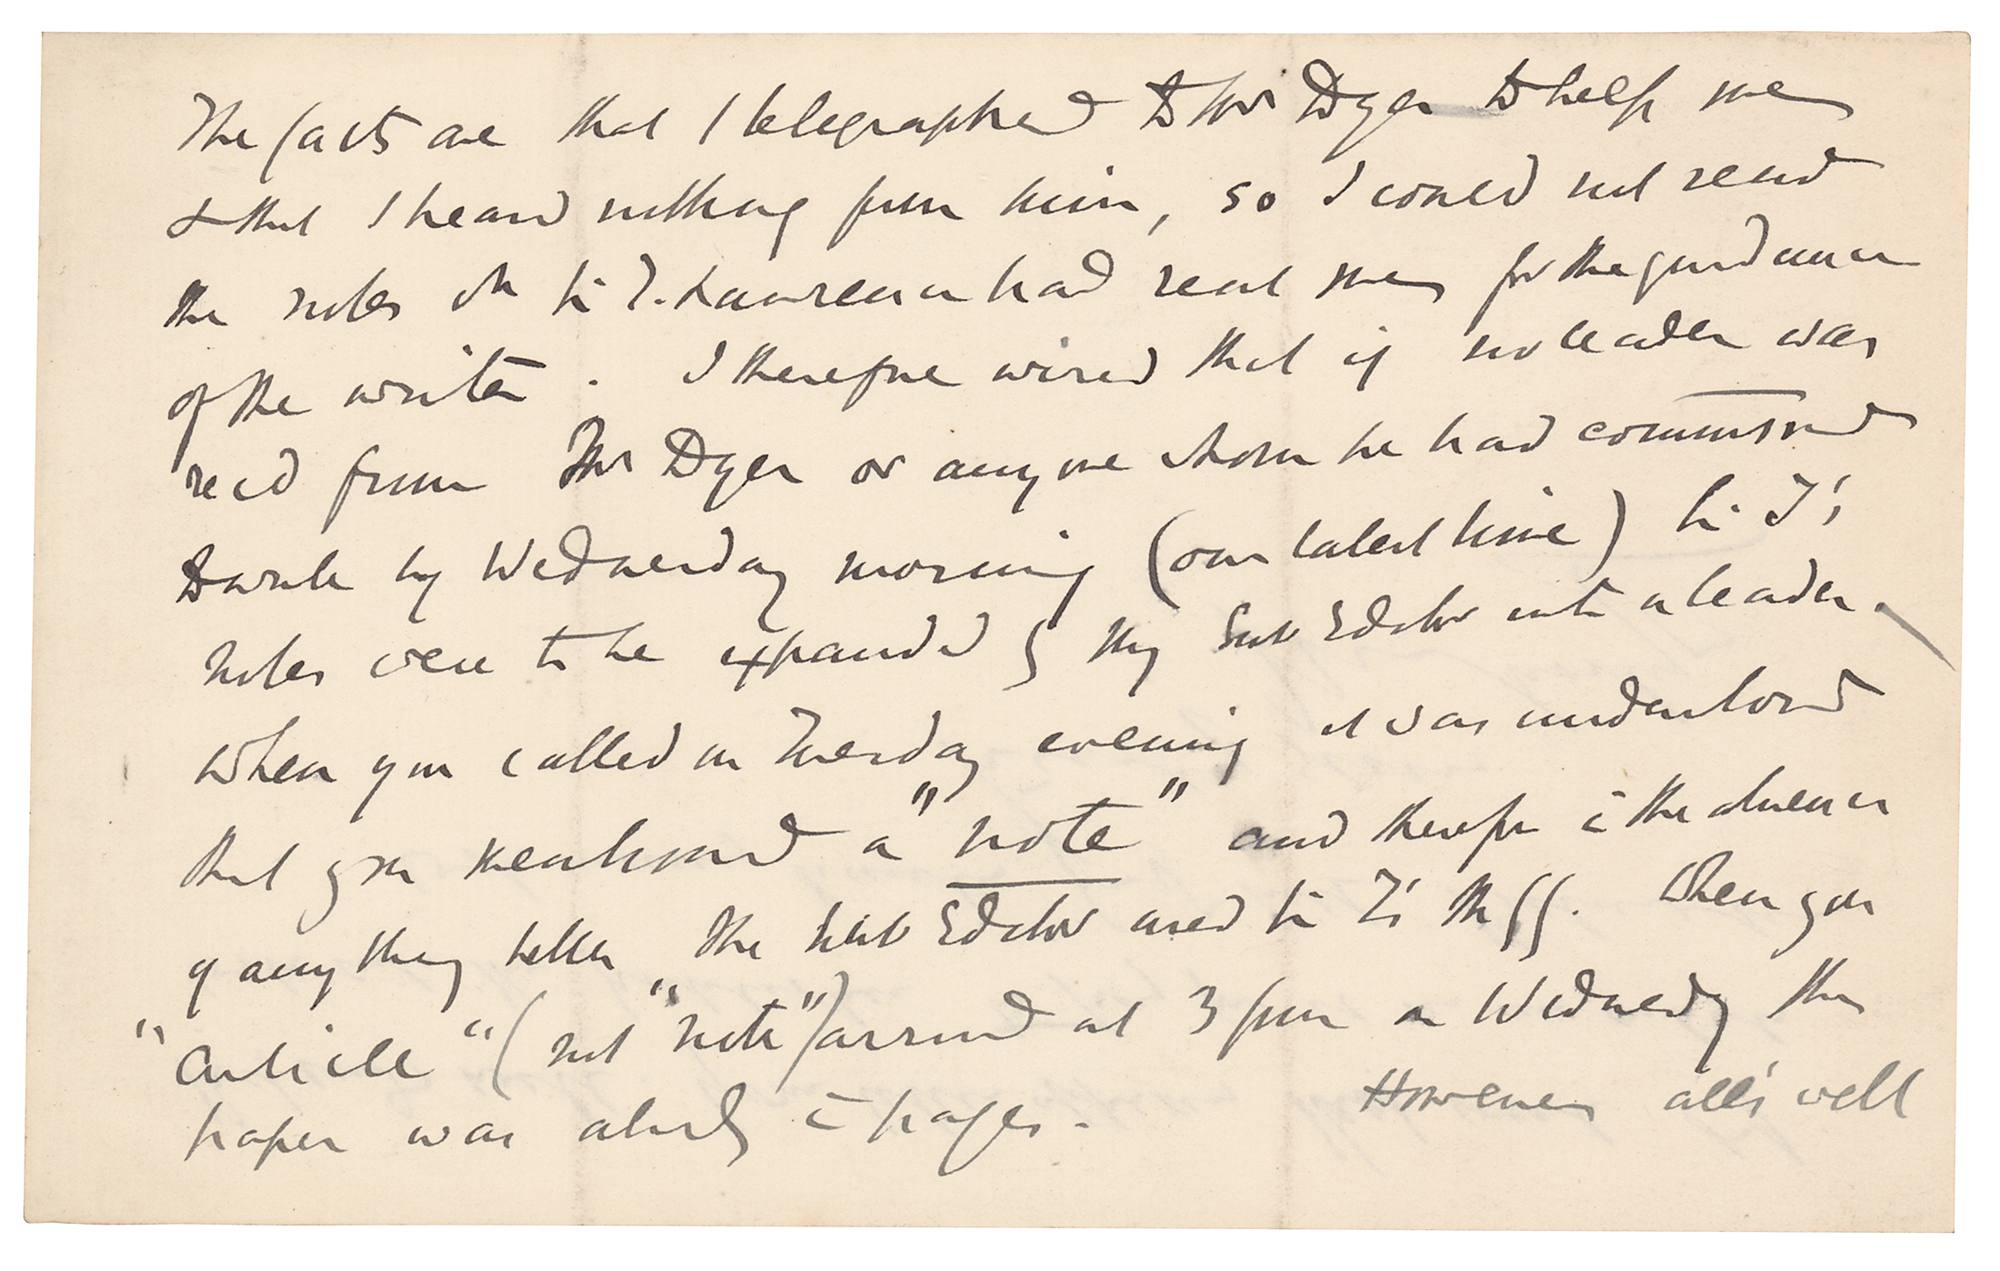 The facts are that I telegraphed to Mr Dyer to help me
& that I heard nothing from him, so I could not send
the notes wh Sir T. Lawrence had sent me for the guidance
of the writer. I therefore wired that if no leader was
recd from Mr Dyer or anyone whom he had commissnd
to write by Wednesday morning (our latest time) Sir T's
notes were to be expanded by my Sub Editor into a leader.
When you called on Tuesday evening it was understood
that you mentioned a "note" and therefore in the absence
of anything better the Sub Editor used Sir T's When your
"article" (not "note") arrived at 3 from on Wednesday the
paper was already in pages. However all's well